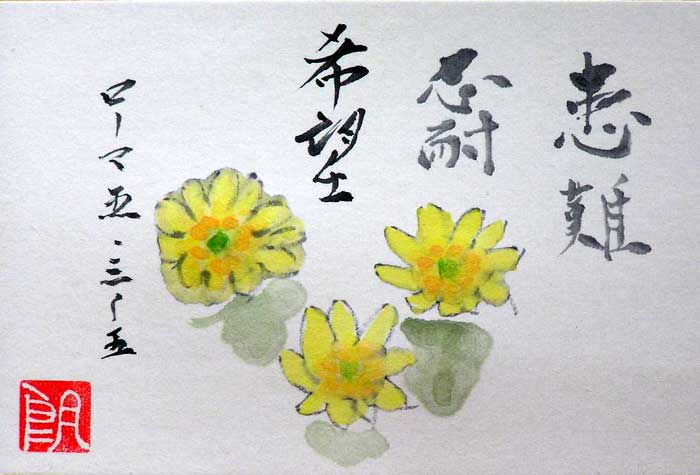 患難
忍耐
希望
ローマ五・三〜五
朗